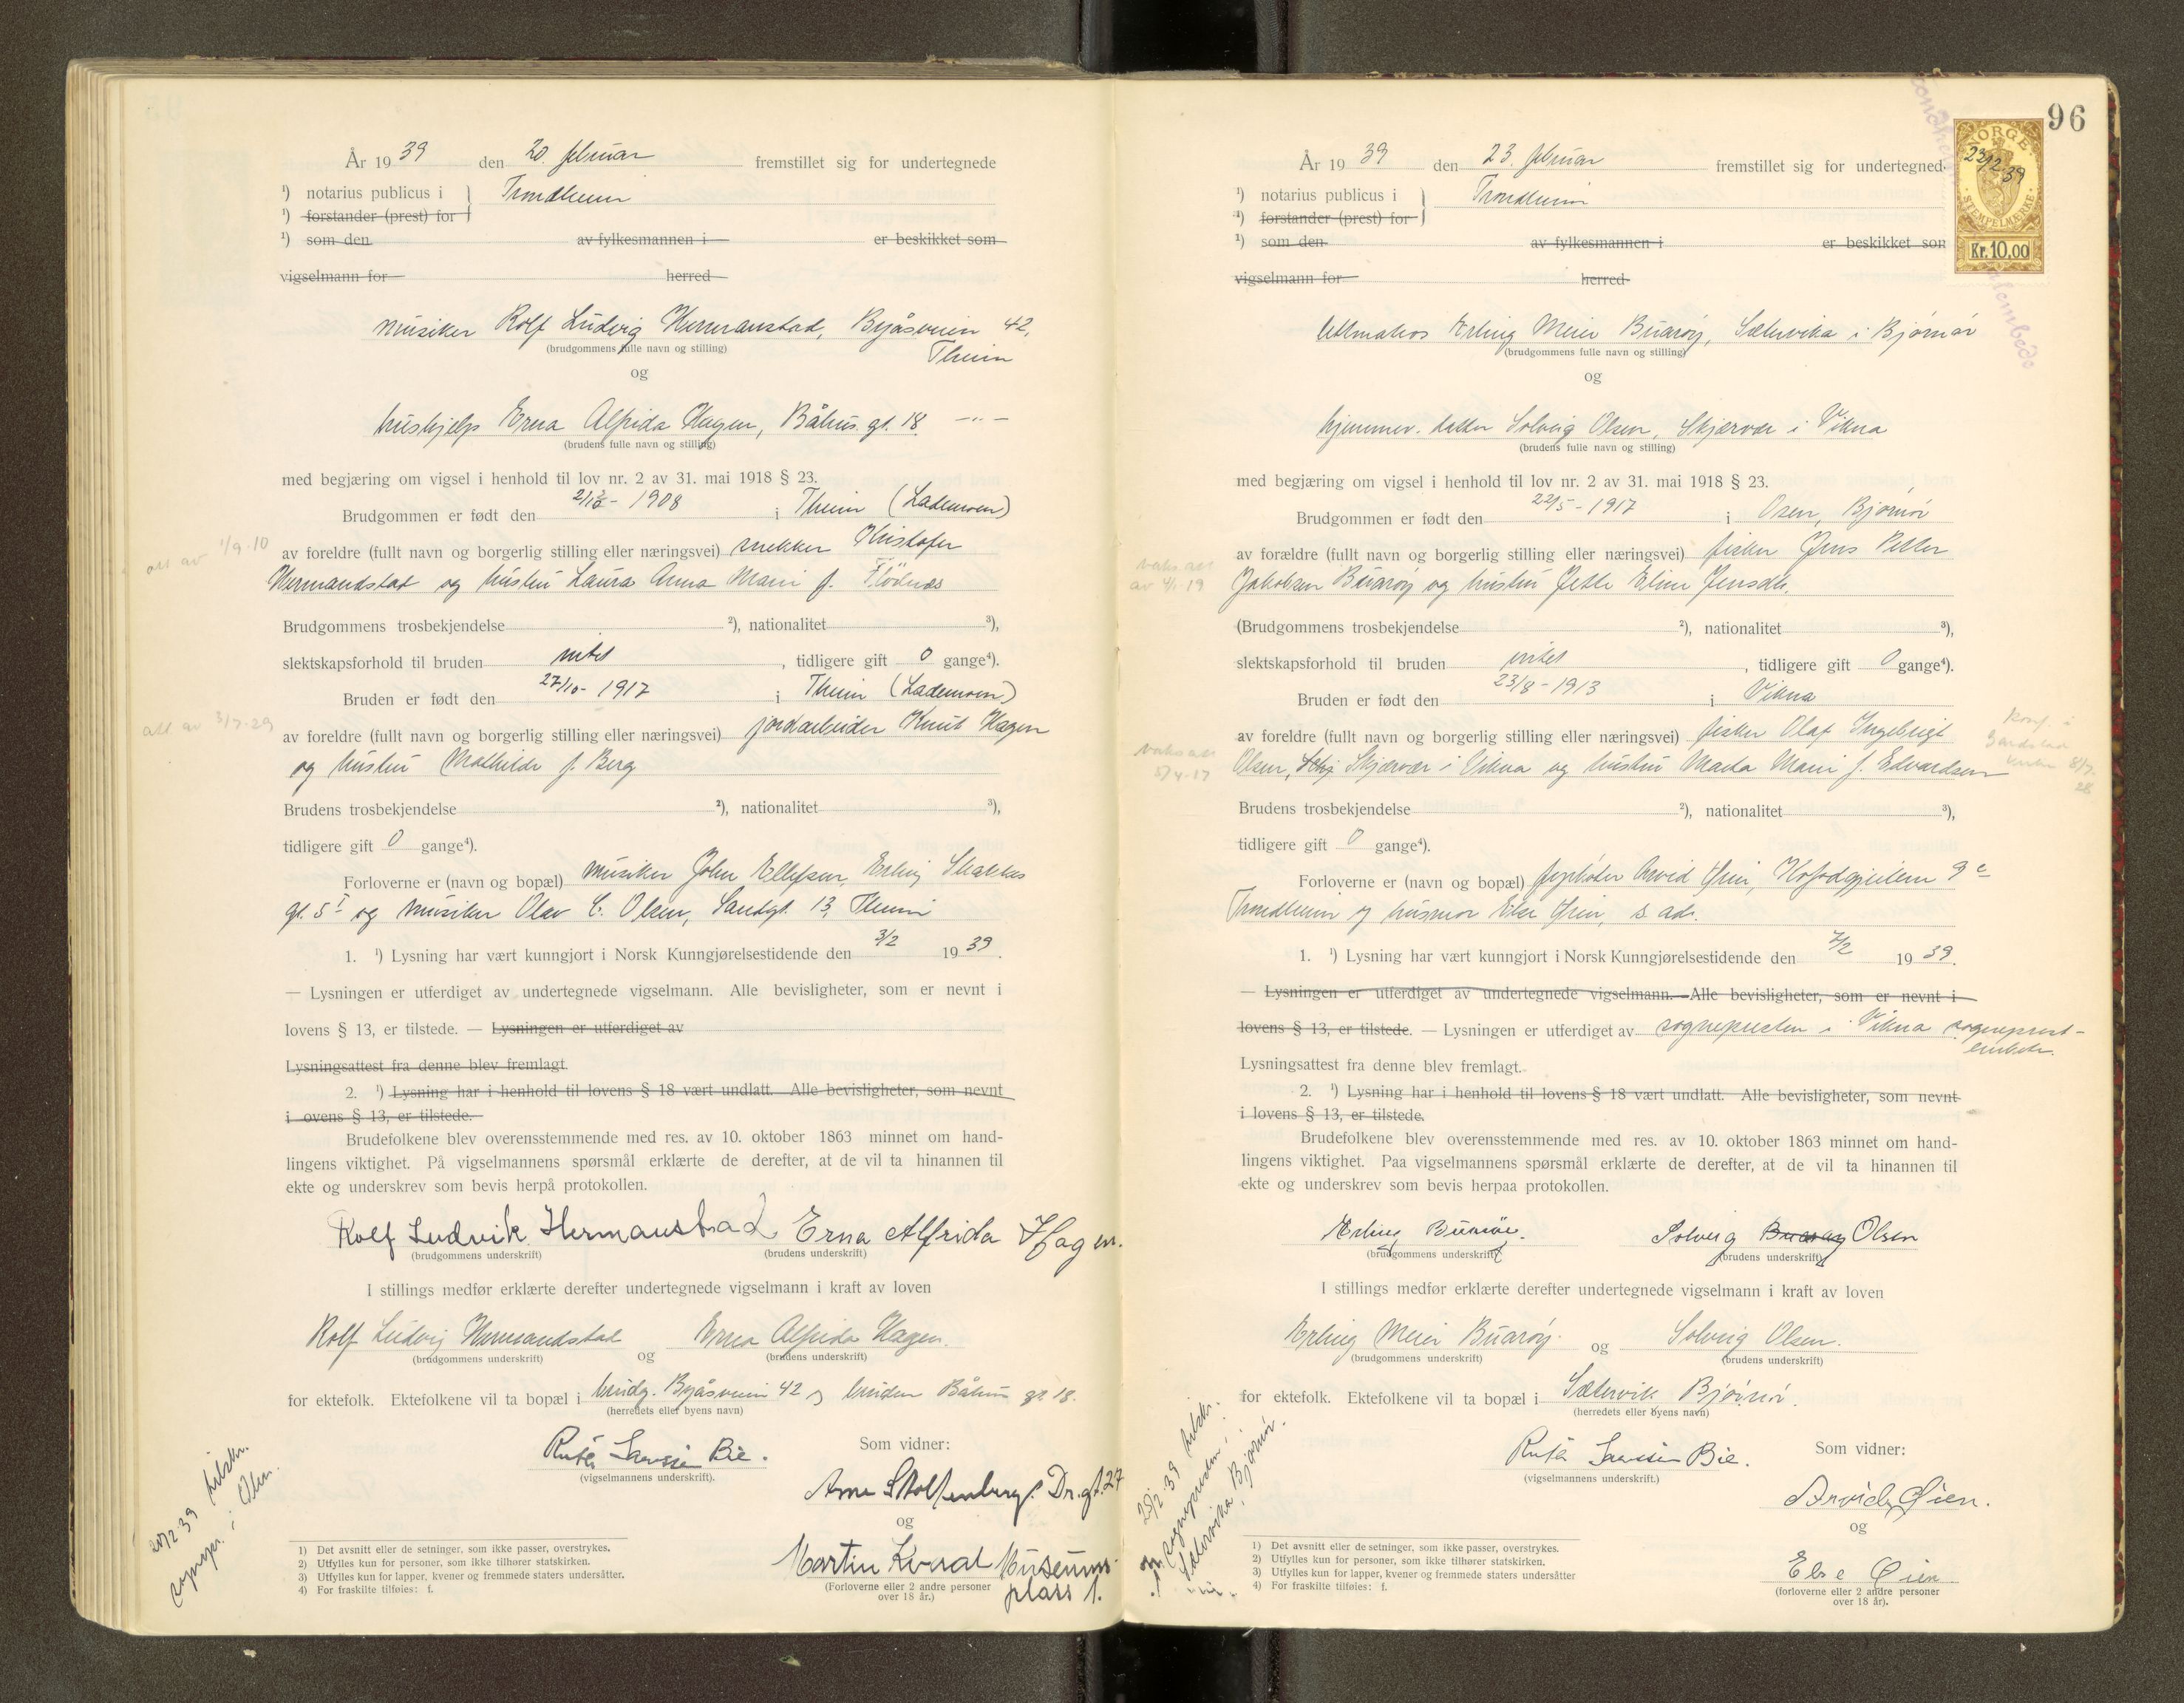 År 1939 den 20. februar fremstillet sig for undertegnede
¹) notarius publicus i } Trondheim
¹) forstander (prest) for }
¹) som den av fylkesmannen i er beskikket som
vigselmann for herred
musiker Rolf Ludvig Hermanstad, Byåsveien 42,
Theim
(brudgommens fulle navn og stilling)
og
hushjelp Erna Alfrida Hagen, Båhus gt. 18. —"—
(brudens fulle navn og stilling)
med begjæring om vigsel i henhold til lov nr. 2 av 31. mai 1918 § 23.
Brudgommen er født den 1908 i Theim (Lademoen)
att av 1/9.10
av foreldre (fullt navn og borgerlig stilling eller næringsvei) snekker Kristofer
Hermandstad og hustru Laura Anna Marie f. Flödnes
Brudgommens trosbekjendelse ²), nationalitet ³),
slektskapsforhold til bruden intet, tidligere gift 0 gange⁴).
Bruden er født den 27/10- 1917 i Theim (Lademoen)
att av 3/7.29
av foreldre (fullt navn og borgerlig stilling eller næringsvei) jordarbeider Knut Hagen
og hustru Mathilde f. Berg
Brudens trosbekjendelse ²), nationalitet ³),
tidligere gift 0 gange⁴).
Forloverne er (navn og bopæl) musiker John Ellefsen, Erling Skakkes
gt. 5 I og musiker Olav C. Olsen, Sandgt. 13, Theim
1. ¹) Lysning har vært kunngjort i Norsk Kunngjørelsestidende den 3/2 1939.
— Lysningen er utferdiget av undertegnede vigselmann. Alle bevisligheter, som er nevnt i
lovens § 13, er tilstede. — Lysningen er utferdiget av
Lysningsattest fra denne blev fremlagt
2. ¹) Lysning har i henhold til lovens § 18 vært undlatt. Alle bevisligheter, som nevnt
i ovens § 13, er tilstede.
Brudefolkene blev overensstemmende med res. av 10. oktober 1863 minnet om hand-
lingens viktighet. På vigselmannens spørsmål erklærte de derefter, at de vil ta hinannen til
ekte og underskrev som bevis herpå protokollen.
Rolf Ludvik Hermanstad Erna Alfrida Hagen.
(brudgommens underskrift) (brudens underskrift)
I stillings medfør erklærte derefter undertegnede vigselmann i kraft av loven
Rolf Ludvig Hermandstad og Erna Alfrida Hagen.
(brudgommens underskrift) (brudens underskrift)
for ektefolk. Ektefolkene vil ta bopæl i brudg. Byåsveien 42 og bruden Båhus gt 18.
(herredets eller byens navn)
Som vidner:
Bie.
(vigselmannens underskrift).
Arne Stoltenberg. Dr.gt.27
og
Martin Kvaal Museums-
plass 1.
(Forloverne eller 2 andre personer
over 18 år.)
20/2.39 tilskr.
sognepr. i
1) Det avsnitt eller de setninger, som ikke passer, overstrykes.
2) Utfylles kun for personer, som ikke tilhører statskirken.
3) Utfylles kun for lapper, kvener og fremmede staters undersåtter.
4) For fraskilte tilføies: f.
96
NORGE
23/2 39
STEMPELMERKE
Kr. 10.00
År 1939 den 23. februar fremstillet sig for undertegned
¹) notarius publicus i } Trondheim
¹) forstander (prest) for }
¹) som den av fylkesmannen i er beskikket son
vigselmann for herred
Erling Meier Buarøy, Sætervika i Bjørnør
(brudgommens fulle navn og stilling)
og
hjemmev. datter Solveig Olsen, Skjærvær i Vikna
(brudens fulle navn og stilling)
med begjæring om vigsel i henhold til lov nr. 2 av 31. mai 1918 § 23.
Brudgommen er født den 22/5 - 1917 i Osen, Bjørnør
vaks.att
av 4/1.19
av forældre (fullt navn og borgerlig stilling eller næringsvei) fisker Jens Petter
Jakobsen Buarøy og hustru Jette Eline Jensdtr.
(Brudgommens trosbekjendelse ²), nationalitet ³),
slektskapsforhold til bruden intet, tidligere gift 0 gange⁴).
Bruden er født den 23/8 - 1913 i Vikna
vaks.att
5/4.17
av foreldre (fullt navn og borgerlig stilling eller næringsvei) fisker Olaf Ingebrigt
Olsen, Skjærvær i Vikna og hustru Marta Marie f. Edvardsen
konf. i
Garstad
kirke 8/7.
28
Brudens trosbekjendelse ²), nationalitet ³),
tidligere gift 0 gange⁴).
Forloverne er (navn og bopæl) fyrbøter Arvid Øien, 9 c
Trondheim og husmor Else Øien, s. adr.
1. ¹) Lysning har vært kunngjort i Norsk Kunngjørelsestidende den 7/2 1939.
— Lysningen er utferdiget av undertegnede vigselmann. — Alle bevisligheter, som er nevnt i
lovens § 13, er tilstede. — Lysningen er utferdiget av sognepresten i Vikna sogneprest-
embede.
Lysningsattest fra denne blev fremlagt.
2. ¹) Lysning har i henhold til lovens § 18 vært undlatt. Alle bevisligheter, som nevnt
i lovens § 13, er tilstede.
Brudefolkene blev overensstemmende med res. av 10. oktober 1863 minnet om hand-
lingens viktighet. Paa vigselmannens spørsmål erklærte de derefter, at de vil ta hinannen til
ekte og underskrev som bevis herpaa protokollen.
Erling Buarøy. Solveig Buarøy Olsen
(brudgommens underskrift) (brudens underskrift)
I stillings medfør erklærte derefter undertegnede vigselmann i kraft av loven
Erling Meier Buarøy. og Solveig Olsen.
(brudgommens underskrift) (brudens underskrift)
for ektefolk. Ektefolkene vil ta bopæl i Sætervik Bjørnør.
(herredets eller byens navn)
Som vidner:
Bie.
(vigselmannens underskrift.)
Arvid Øien.
og
Else Øien
(forloverne eller 2 andre personer
over 18 år).
25/2.39 tilskr.
sognepresten i
Sætervika, Bjørnør.
1) Det avsnitt eller de setninger, som ikke passer, overstrykes.
2) Utfylles kun for personer, som ikke tilhører statskirken.
3) Utfylles kun for lapper, kvener og fremmede staters undersåtter
4) For fraskilte tilføies: f.